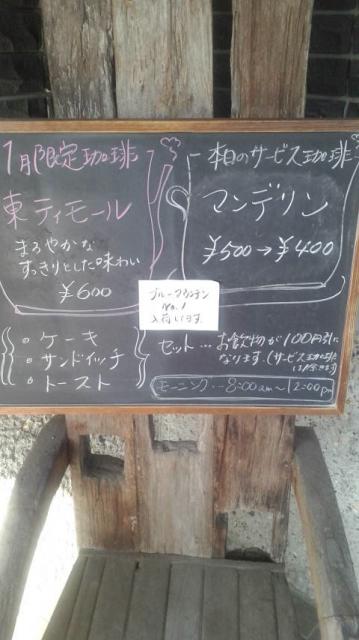 1月限定珈琲
東ティモール
まろやかな
すっきりとした味わい
¥600
本日のサービス珈琲
マンデリン
¥500→¥400
ブルーマウンテン
No.1
入荷します。
・ケーキ
・サンドイッチ
・トースト
セット…お飲物が100円引に
なります。(サービス珈琲
モーニング…8:00am〜12:00pm